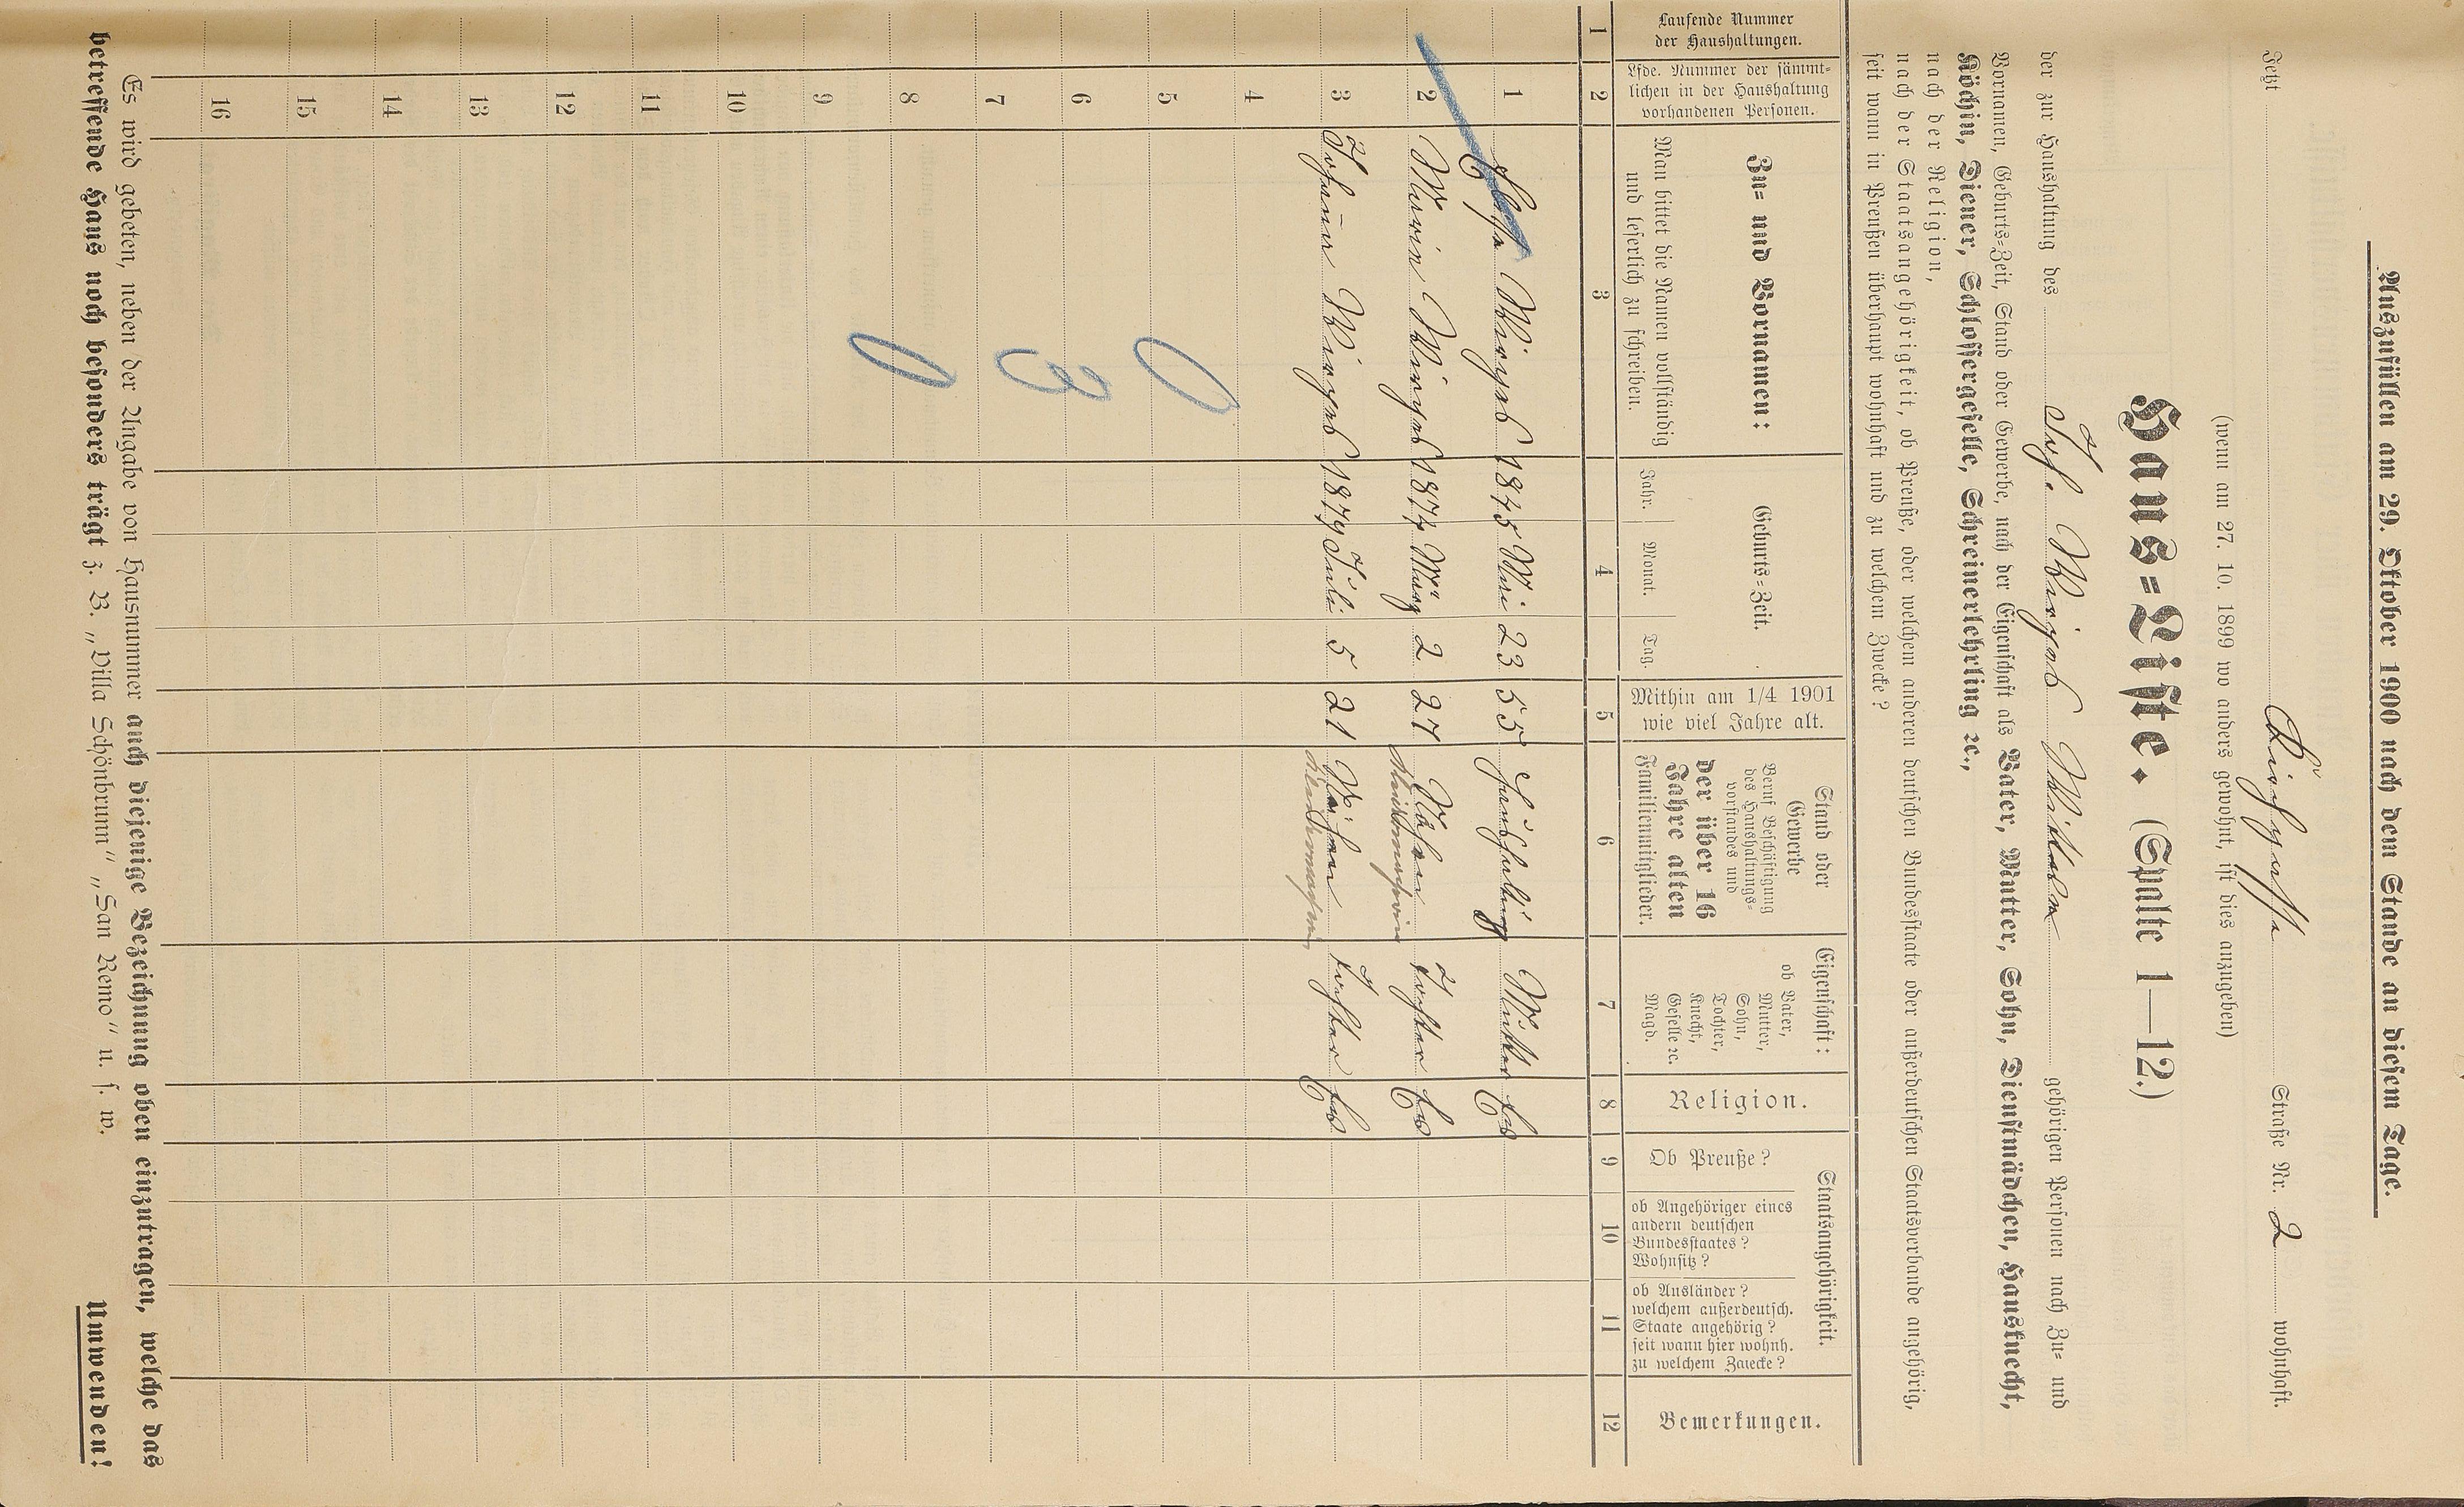 Auszufüllen am 29. Oktober 1900 nach dem Stande an diesem Tage.
Jetzt Straße Nr. 2 wohnhaft.
(wenn am 27. 10. 1899 wo anders gewohnt, ist dies anzugeben)
Haus-Liste. (Spalte 1—12.)
der zur Haushaltung des Joh. Wirges Witwe gehörigen Personen nach Zu- und
Vornamen, Geburts-Zeit, Stand oder Gewerbe, nach der Eigenschaft als Vater, Mutter, Sohn, Dienstmädchen, Hausknecht,
Köchin, Diener, Schlossergeselle, Schreinerlehrling ꝛc.,
nach der Religion,
nach der Staatsangehörigkeit, ob Preuße, oder welchem anderen deutschen Bundesstaate oder außerdeutschen Staatsverbande angehörig,
seit wann in Preußen überhaupt wohnhaft und zu welchem Zwecke?
Laufende Nummer
der Haushaltungen.
Lfde. Nummer der sämmt-
lichen in der Haushaltung
vorhandenen Personen.
Zu- und Vornamen:
Man bittet die Namen vollständig
und leserlich zu schreiben.
Geburts-Zeit.
Jahr.
Monat.
Tag.
Mithin am 1/4 1901
wie viel Jahre alt.
Stand oder
Gewerbe
Beruf Beschäftigung
des Haushaltungs-
vorstandes und
der über 16
Jahre alten
Familienmitglieder.
Eigenschaft:
ob Vater,
Mutter,
Sohn,
Tochter,
Knecht,
Geselle ꝛc.
Magd.
Religion.
Staatsangehörigkeit.
Ob Preuße?
ob Angehöriger eines
andern deutschen
Bundesstaates?
Wohnsitz?
ob Ausländer?
welchem außerdeutsch.
Staate angehörig?
seit wann hier wohnh.
zu welchem Zwecke?
Bemerkungen.
1 2 3 4 5 6 7 8 9 10 11 12
1 Wirges 1845 Mai 23 55 Haushaltung Mutter Ev
2 Marie Wirges 1874 März 2 27 Nähen Tochter Ev
Kleidermacherin
3 Johana Wirges 1879 Juli 5 21 Nähen Tochter Ev
4
5
6
7
8
9
10
11
12
13
14
15
16
0
3
0
Es wird gebeten, neben der Angabe von Hausnummer auch diejenige Bezeichnung oben einzutragen, welche das
betreffende Haus noch besonders trägt z. B. „Villa Schönbrunn“ „San Remo“ u. s. w.
Umwenden!